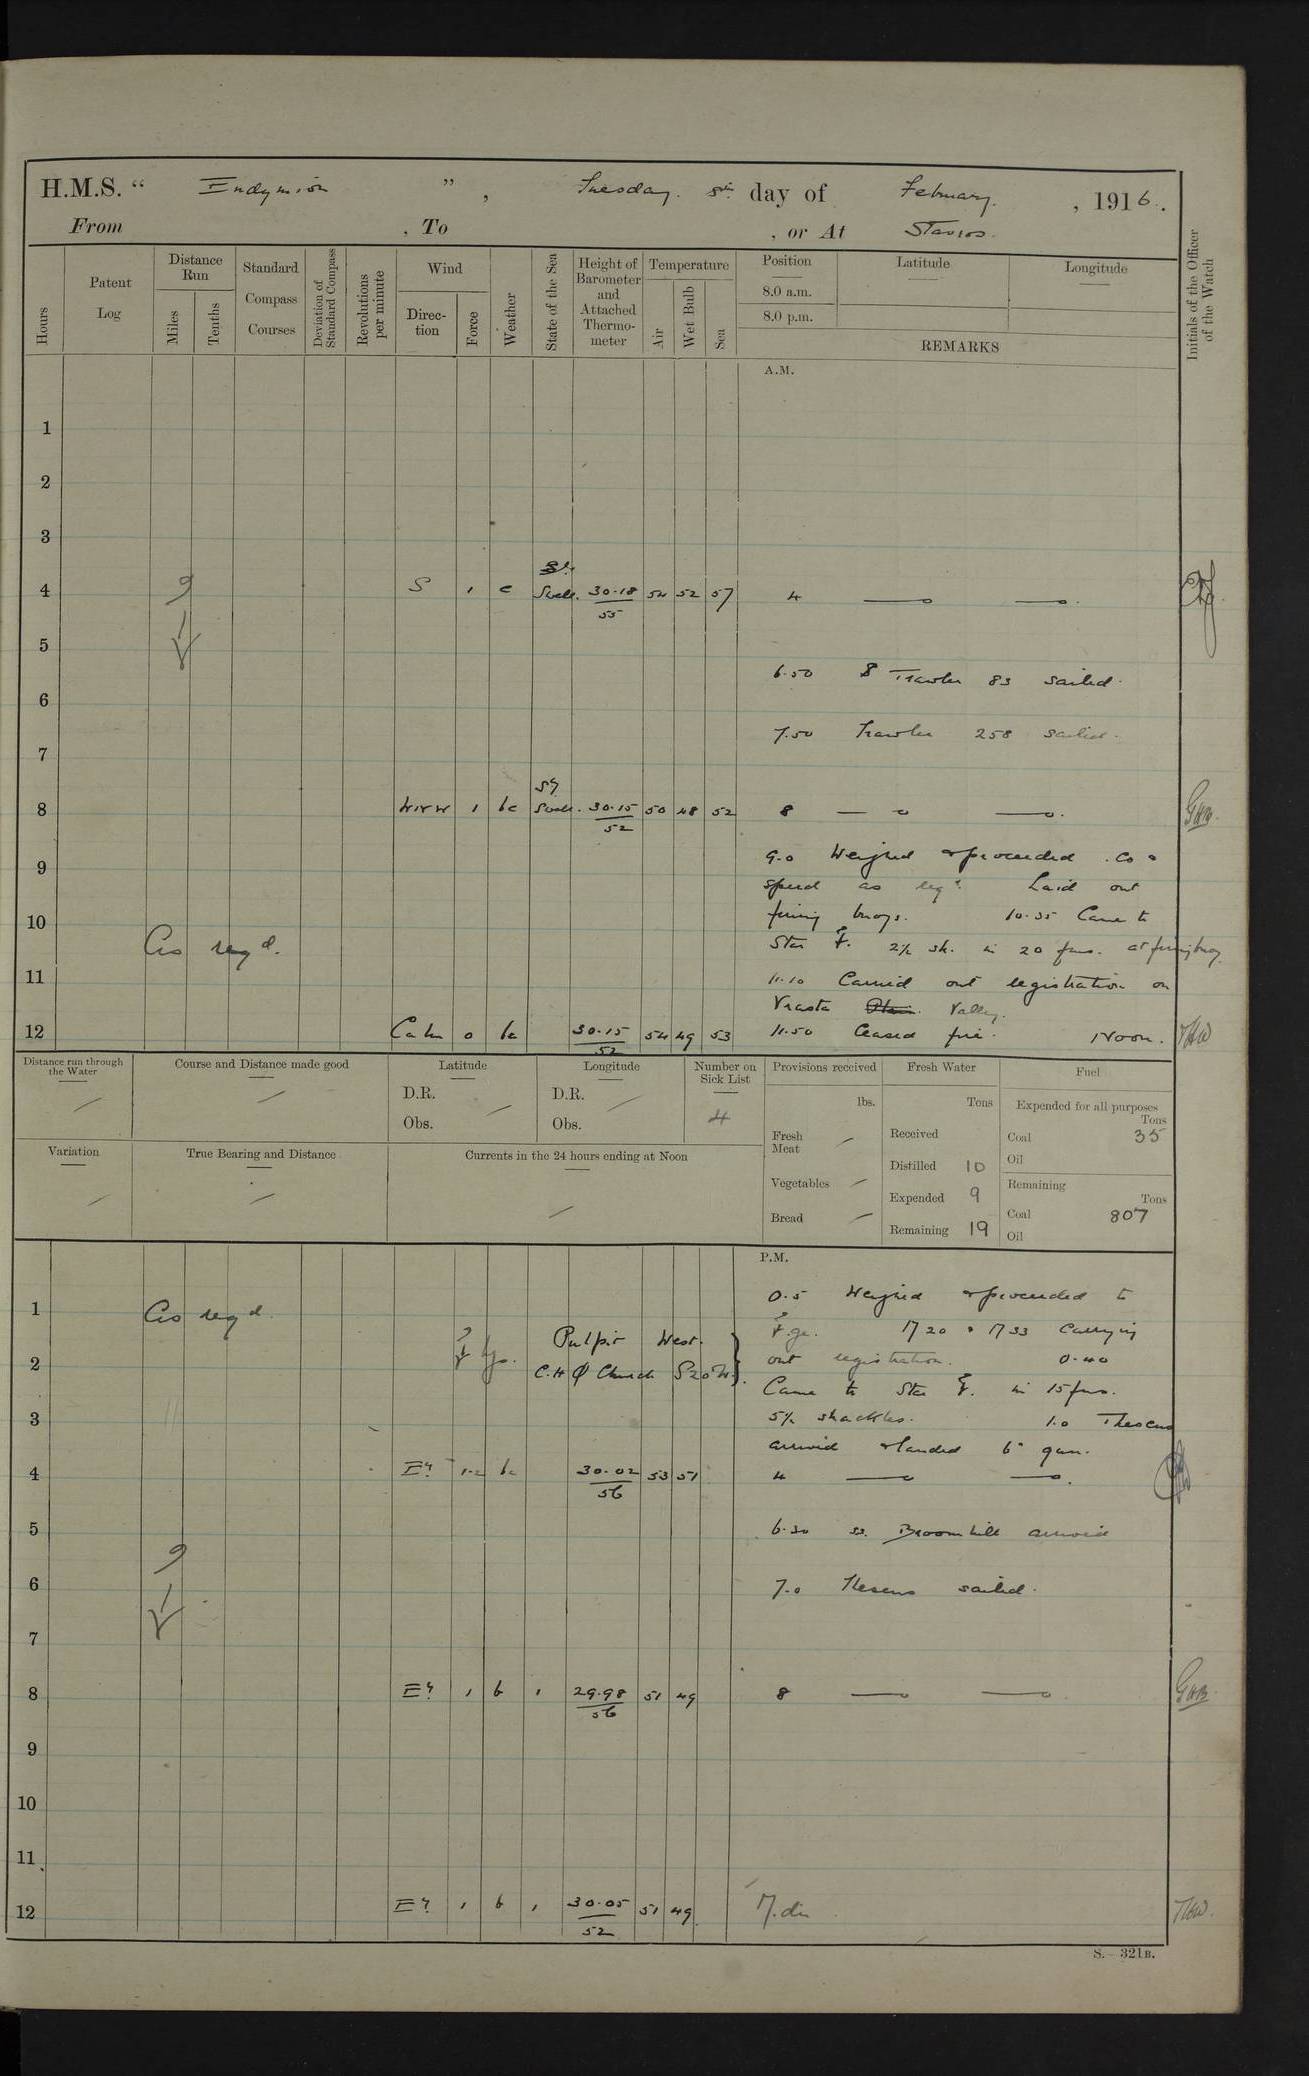 H.M.S. “ Endymion ” , Tuesday. 8th day of February. , 1916.
From , To , or At Stavros.
Hours
Patent Log
Distance Run
Miles
Tenths
Standard Compass Courses
Deviation of Standard Compass
Revolutions per minute
Wind
Direction
Force
Weather
State of the Sea
Height of Barometer and Attached Thermometer
Temperature
Air
Wet Bulb
Sea
Position
8.0 a.m.
8.0 p.m.
Latitude
Longitude
REMARKS
Initials of the Officer of the Watch
A.M.
1
2
3
4 S 1 c Swell. 30.18 55 54 52 57 4
5
6.50 Trawler 83 sailed.
6
7.50 Trawler 258 sailed.
7
8 WNW 1 bc Sy Swell. 30.15 52 50 48 52 8 GHB.
9.0 Weighed & proceeded. Co &
9
speed as reqd. Laid out
10 firing buoys. 10.35 Came to
Co reqd.
Star 2½ sh. in 20 fms. at firing buoy.
11
11.10 Carried out registration on
Vrasta Valley.
12 Calm 0 bc 30.15 52 54 49 53 11.50 Ceased fire. Noon.
Distance run through the Water
Course and Distance made good
Latitude
D.R.
Obs.
Longitude
D.R.
Obs.
Number on Sick List
4
Provisions received
lbs.
Fresh Meat
Vegetables
Bread
Fresh Water
Tons
Received
Distilled 10
Expended 9
Remaining 19
Fuel
Expended for all purposes
Tons
Coal 35
Oil
Remaining
Tons
Coal 807
Oil
Variation
True Bearing and Distance
Currents in the 24 hours ending at Noon
P.M.
0.5 Weighed & proceeded to
1 Co reqd.
M 20 & M 33 carrying
Pulpit West.
2 out registration. 0.40
C.H Φ Church S20W.
Came to Star in 15 fms.
3 5½ shackles. 1.0 Theseus
arrived & landed 6" gun.
4 Ely 1-2 bc 30.02 56 53 51 4
5 6.30 ss. Broomhill arrived
6 7.0 Theseus sailed.
7
8 Ely 1 b 1 29.98 56 51 49 8 GHB.
9
10
11
12 Ely 1 b 1 30.05 52 51 49 M.dn
S.— 321B.